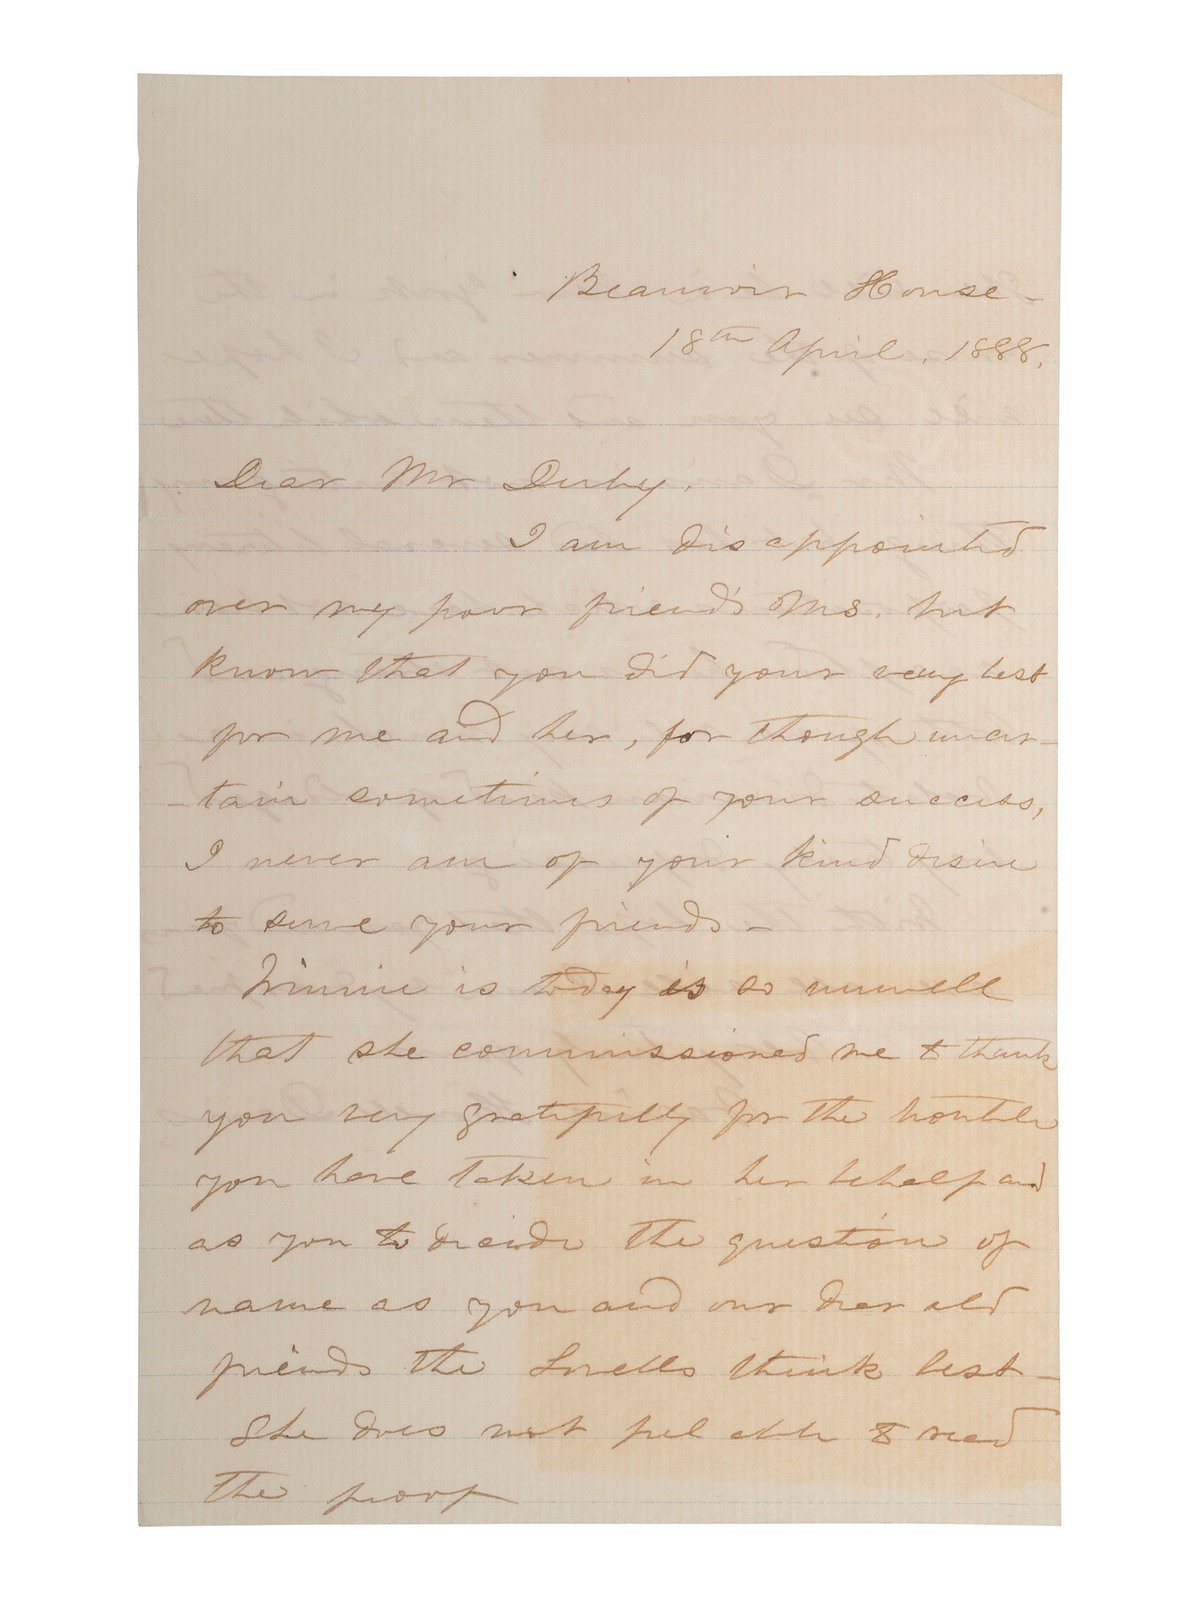 Beauvoir House -
18th April, 1888.
Dear Mr Derby.
I am disappointed
over my poor friend's Ms. but
know that you did your very best
for me and her, for though uncer-
-tain sometimes of your success,
I never am of your kind desire
to serve your friends -
Winnie is today is so unwell
that she commissioned me to thank
you very gratefully for the trouble
you have taken in her behalf and
as you to decide the question of
name as you and our dear old
friends the Lovells think best -
She does not feel able to read
the proof